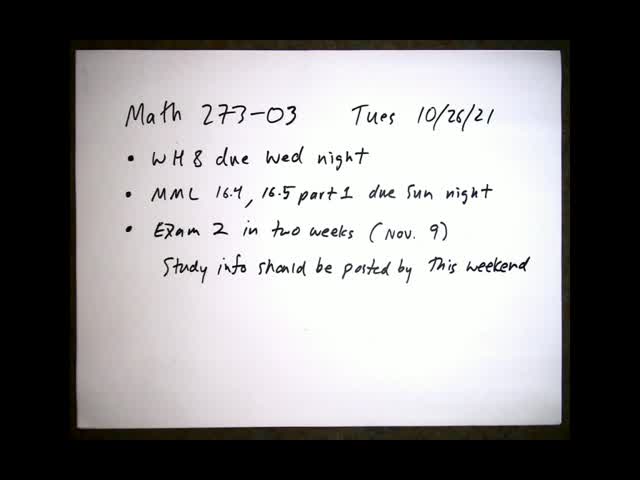 Math 273-03 Tues 10/26/21
• WH 8 due Wed night
• MML 16.4, 16.5 part 1 due Sun night
• Exam 2 in two weeks (Nov. 9)
Study info should be posted by This weekend